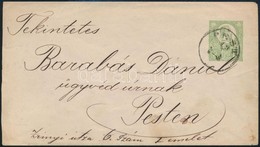 Tekintetes
Barabás Dániel
ügyvéd urnak
Pesten
Zrinyi utza 6. szám I emelet